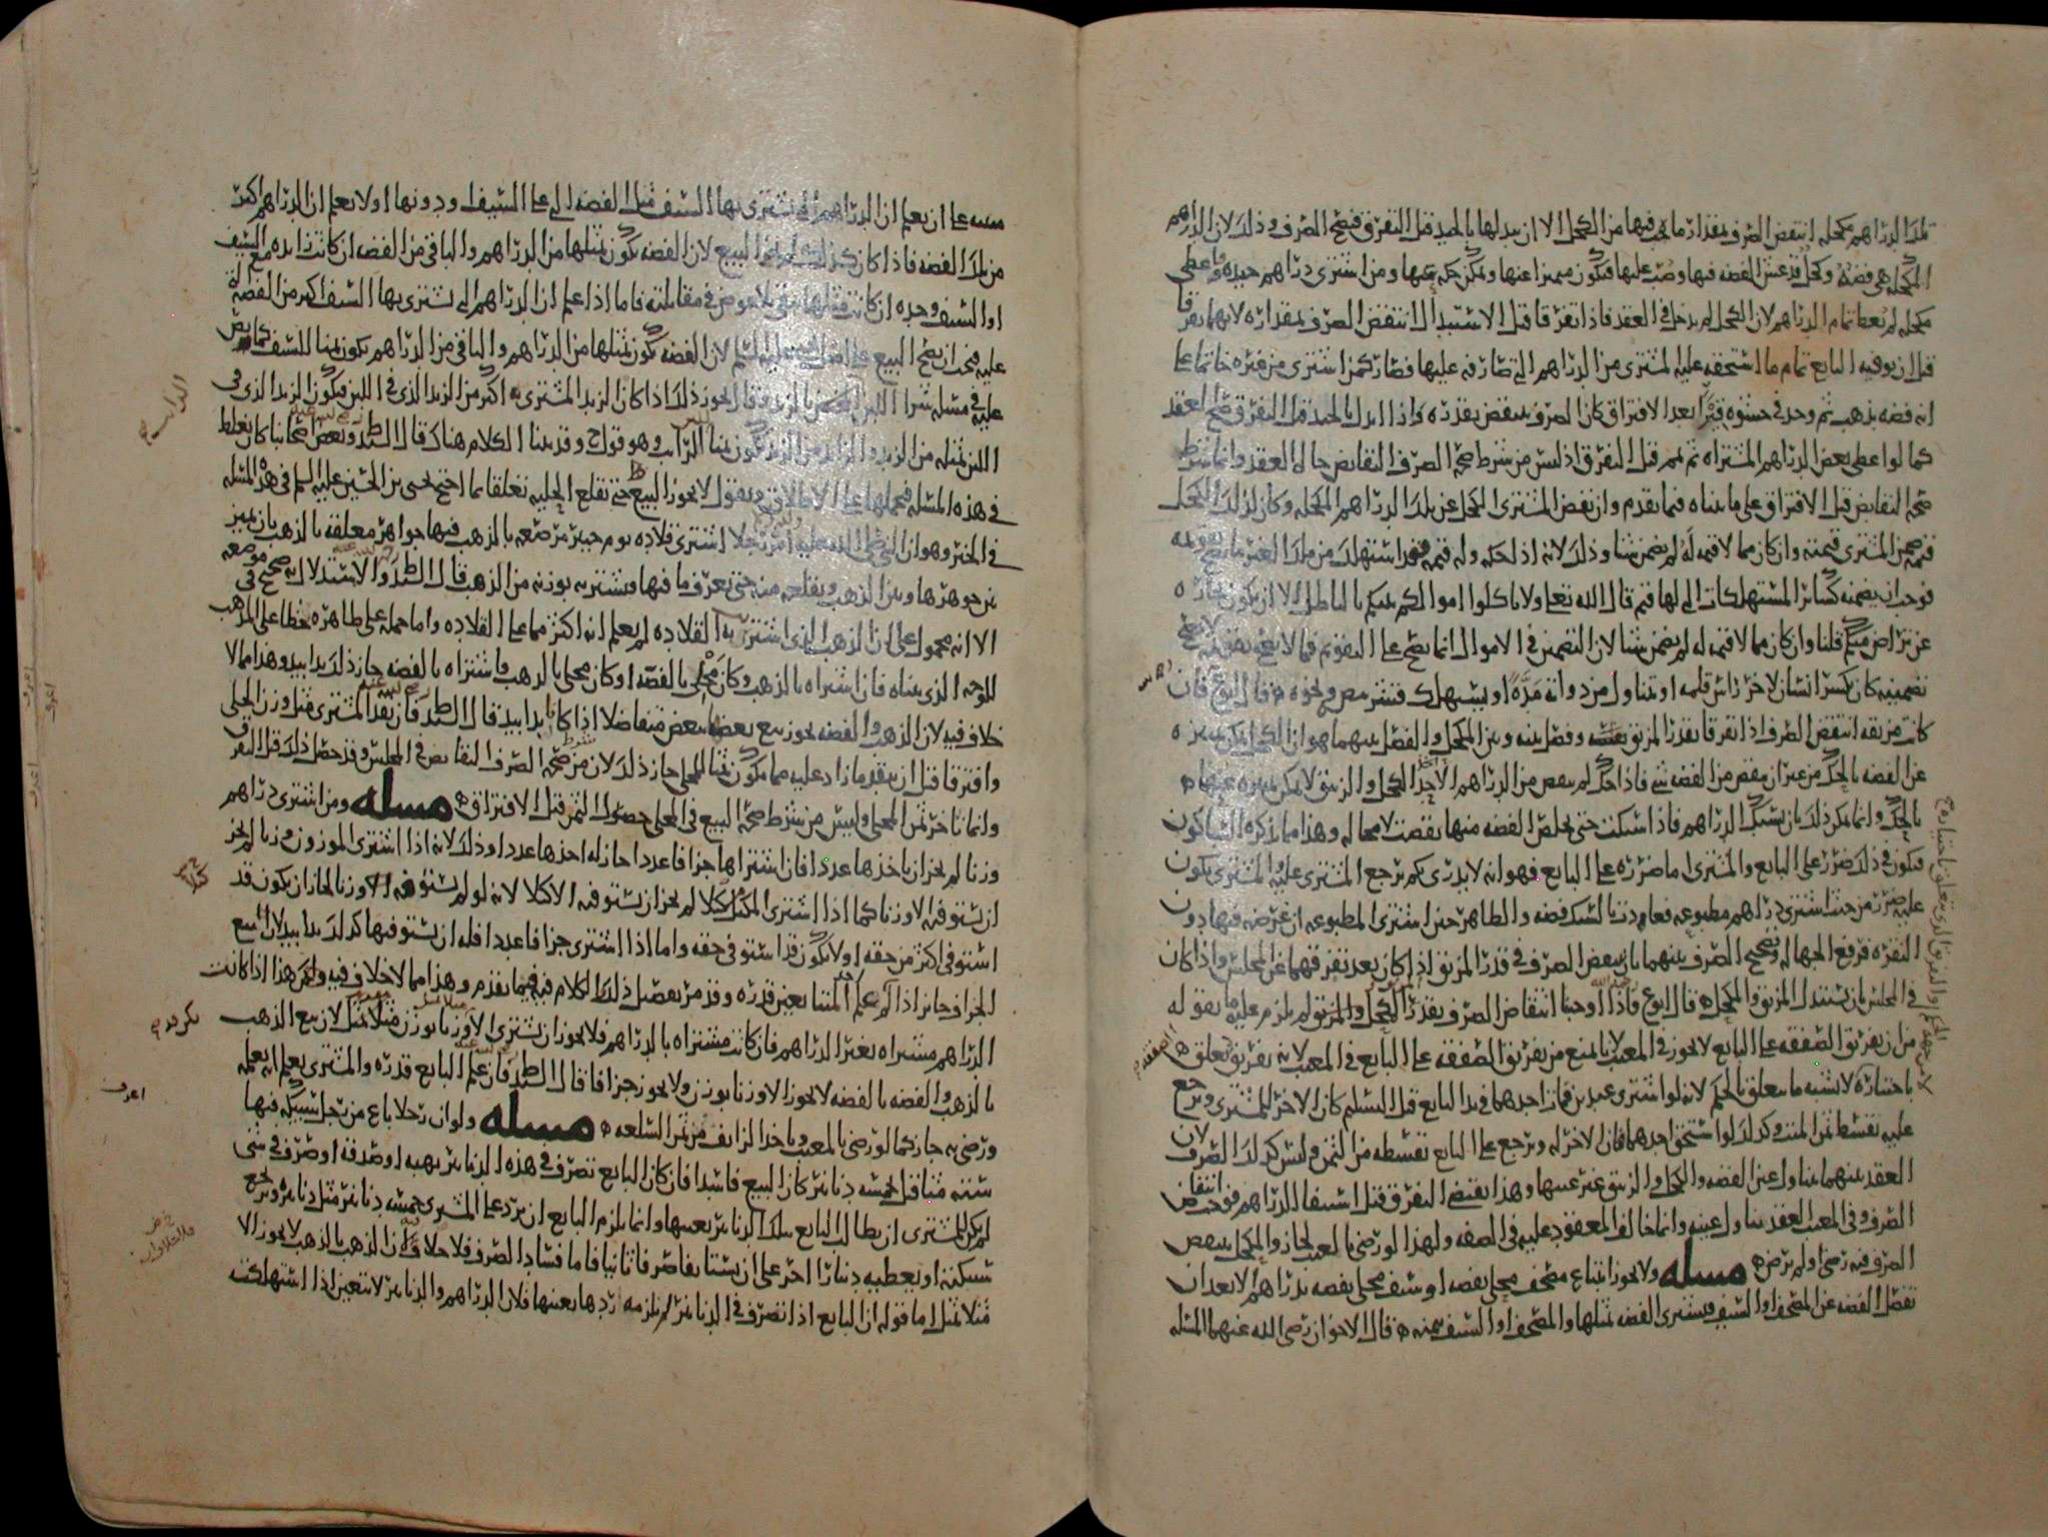 تلك الدراهم مكحلة انتقض الصرف بمقدار ما فيها من الكحل الا ان يبدلها بالجيد قبل التفرق فيصح الصرف وذلك لان الدراهم
المكحلة هي فضة وكحل قد غش الفضة فيها وصب عليها فيكون متميزا عنها ويمكن حكه عنها ومن اشترى دراهم جيده فاعطى
مكحله لم يعط تمام الدراهم لان الكحل لم يدخل في العقد فاذا تفرقا قبل الاستبدال انتقض الصرف بمقداره لانهما تفرقا
قبل ان يوفيه البايع تمام ما استحقه عليه المشتري من الدراهم التي صارفه عليها فصار كمن اشترى من غيره خاتما على
انه فضه بذهب ثم وجد في حشوه بعد الافتراق كان الصرف ينتقض بقدره واذا ابدل بالجيد قبل التفرق صح العقد
كما لو اعطى بعض الدراهم المشتراه ثم تمم قبل التفرق اذ ليس من شرط صحة الصرف التقابض حالة العقد وانما شرط
صحة التقابض قبل الافتراق على ما بيناه فيما تقدم وان نقض المشتري الكحل عن تلك الدراهم المكحله وكان لذلك الكحل
قيمة ضمن المشتري قيمته وان كان مما لا قيمة له لم يضمن شيا وذلك لانه اذا حكه وله قيمة فقد استهلك من ملك الغير ما يصح تقويمه
فوجب ان يضمنه كسائر المستهلكات التي لها قيم قال الله تعلى ولا تاكلوا اموالكم بينكم بالباطل الا ان تكون تجاره
عن تراض منكم قلنا وان كان مما لا قيمه له لم يضمن شيا لان التضمين في الاموال انما يصح على التقويم فما لا يصح تقويمه لا يصح
تضمينه كان يكسر انسان لاخر راس قلمه او يتناول من دواته مدة او يستهلك قشر بيض ونحوه قال ابوع فان
كانت مزبقه انتقض الصرف اذا تفرقا بقدر المزبق وفصل بينه وبين المكحل والفصل بينهما هو ان الكحل يمكن تمييزه
عن الفضه بالحك من غير ان ينقص من الفضه شي فاذا حك لم ينقص من الدراهم الا الكحل والزيبق لا يمكن تمييزه عنها
بالحك وانما يمكن ذلك بان يسبك الدراهم فاذا سبكت حتى تخلص الفضه منها نقصت لا محاله وهذا مما يذكره السباكون
فيكون في ذلك ضرر على البايع والمشتري اما ضرره على البايع فهو انه لا يدري كم يرجع المشتري عليه والمشتري يكون
عليه ضرر من حيث اشترى دراهم مطبوعه فعادت بالسبك فضه والظاهر حين اشترى المطبوعه ان غرضه فيها دون
النقره فرفع الجهاله وتصحيح الصرف بينهما بان ينقض الصرف في قدر المزبق اذا كان بعد تفرقهما عن المجلس واذا كان
في المجلس بان يستبدل المزبق والمكحل قال ابوع فاذا اوجبنا انتقاض الصرف بقدر الكحل والمزبق لم يلزم عليه ما يقوله
من ان تفريق الصفقه على البايع لا يجوز في المعيب لانا نمنع من تفريق الصفقه على البايع في المعيب لانه تفريق تعلق
باختياره لا يشبه ما يتعلق بالحكم لانه لو اشترى عبدين فمات احدهما في يد البايع قبل التسليم كان الاخر للمشتري ويرجع
عليه بقسطه من الثمن وكذلك لو استحق احدهما فان الاخر له ويرجع على البايع بقسطه من الثمن وليس كذلك الصرف لان
العقد بينهما تناول عين الفضه والكحل والزيبق غير عينها وهذا يقتضي التفرق قبل استيفا الدراهم فوجب انتقاض
الصرف وفي المعيب العقد تناول عينه وانما خالف المعقود عليه في الصفه ولهذا لو رضي بالمعيب لجاز والمكحل ينتقض
الصرف فيه رضي او لم يرض مسله ولا يجوز ابتياع مصحف محلى بفضه او سيف محلى بفضه بدراهم الا بعد ان
تفصل الفضه عن المصحف او السيف فيشتري الفضه بمثلها والمصحف او السيف بثمنه قال الاخوان رضي الله عنهما المسله
مبنيه على ان يعلم ان الدراهم التي تشترى بها السيف مثل الفضه التي على السيف او دونها او لا يعلم ان الدراهم اكثر
من تلك الفضه فاذا كان كذلك لم يجز البيع لان الفضه تكون بمثلها من الدراهم والباقي من الفضه ان كانت زايده مع السيف
او السيف وحده ان كانت مثلها يبقى بلا عوض في مقابلته فاما اذا علم ان الدراهم التي تشترى بها السيف اكثر من الفضة التي
عليه فيجب ان يصح البيع على اصل يحيى عليه السلم لان الفضه تكون بمثلها من الدراهم والباقي من الدراهم يكون ثمنا للسيف كما نص
عليه في مسله شرا اللبن بالزبد فقال يجوز ذلك اذا كان الزبد المشترى به اكثر من الزبد الذي في اللبن فيكون الزبد الذي في
اللبن بمثله من الزبد والزايد من الزبد يكون ثمنا للرايب وهو قوله ح وقد بينا الكلام هناك قال السيد ط وبعض اصحابنا كان يغلط
في هذه المسله فيحملها على الاطلاق ويقول لا يجوز البيع حتى تقلع الحليه تعلقا بما احتج يحيى بن الحسين عليه السلم في هذه المسله
في الخبر وهو ان النبي صلى الله عليه امر رجلا اشترى قلاده يوم خيبر مرصعه بالذهب فيها جواهر معلقه بالذهب بان يميز
بين جوهرها وبين الذهب ويقلعه منه حتى يعرف ما فيها فيشتريه بوزنه من الذهب قال السيد ط والاستدلال به صحيح في موضعه
الا انه محمول على ان الذهب الذي اشترى به القلاده لم يعلم انه اكثر مما على القلاده واما حمله على ظاهره فخطا على المذهب
للوجه الذي بيناه فان اشتراه بالذهب وكان محلى بالفضه او كان محلى بالذهب فاشتراه بالفضه جاز ذلك يدا بيد وهذا مما لا
خلاف فيه لان الذهب والفضه يجوز بيع بعضها ببعض متفاضلا اذا كانا يدا بيد قال السيد ط فان نقد المشتري مثل وزن الحلي
وافترقا قبل ان ينقد ما زاد عليه مما يكون ثمنا للمحلى جاز ذلك لان من شرط صحة الصرف التقابض في المجلس وقد حصل ذلك قبل التفرق
وانما تاخر ثمن المحلى وليس من شرط صحة البيع في المحلى حصول الثمن قبل الافتراق مسله ومن اشترى دراهم
وزنا لم يجز ان ياخذها عددا فان اشتراها جزافا عددا جاز له اخذها عددا وذلك لانه اذا اشترى الموزون وزنا لم يجز
ان يستوفيه الا وزنا كما اذا اشترى المكيل كيلا لم يجز ان يستوفيه الا كيلا لانه لو لم يستوفه الا وزنا لجاز ان يكون قد
استوفى اكثر من حقه او لا يكون قد استوفى حقه واما اذا اشترى جزافا عددا فله ان يستوفيها كذلك يدا بيد لان بيع
الجزاف جايز اذا لم يعلم المتبايعين قدره وقد مر تفصيل ذلك والكلام فيه فيما تقدم وهذا مما لا خلاف فيه ولكن هذا اذا كانت
الدراهم مشتراه بغير الدراهم فان كانت مشتراه بالدراهم فلا يجوز ان تشترى الا وزنا بوزن مثلا بمثل لان بيع الذهب
بالذهب والفضه بالفضه لا يجوز الا وزنا بوزن ولا يجوز جزافا قال السيد ط فان علم البايع قدره والمشتري يعلم انه يعلمه
ورضي به جاز كما لو رضي بالمعيب وياخذ الزايف من ثمن السلعه مسله ولو ان رجلا باع من رجل سبيكه فيها
سته مثاقيل بخمسه دنانير كان البيع فاسدا فان كان البايع تصرف في هذه الدنانير بهبه او صدقه او صرف في شي
لم يكن للمشتري ان يطالب البايع بتلك الدنانير بعينها وانما يلزم البايع ان يرد على المشتري خمسه دنانير مثل دنانيره ويرتجع
سبيكته او يعطيه دينارا اخر على ان يستانفا صرفا ثانيا فاما فساد الصرف فلا خلاف فيه لان الذهب بالذهب لا يجوز الا
مثلا بمثل اما قوله ان البايع اذا تصرف في الدنانير لم يلزمه ردها بعينها فلان الدراهم والدنانير لا تتعين اذا استهلكت